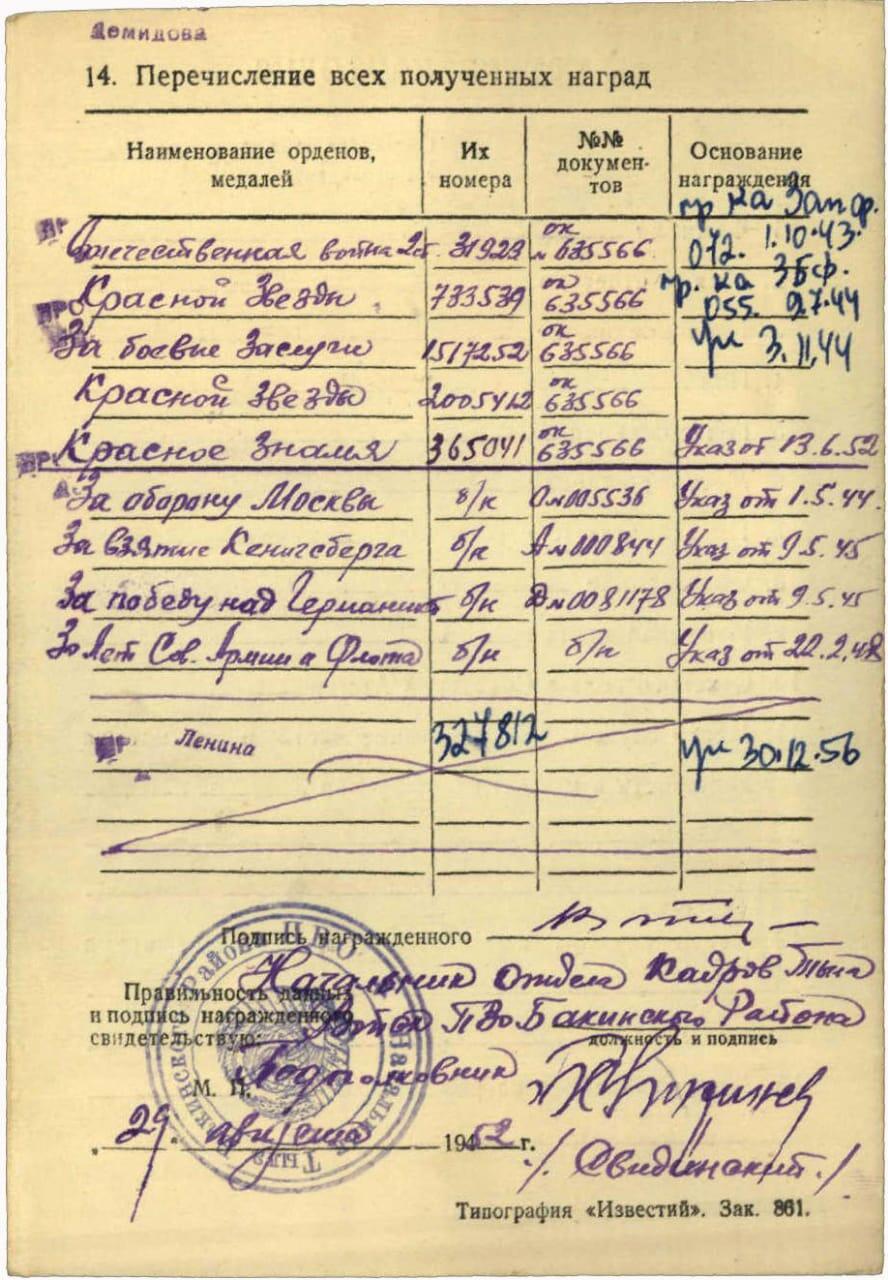 Демидова
14. Перечисление всех полученных наград
Наименование орденов, медалей
Их номера
№№ документов
Основание награждения
Отечественная война 2 ст. 31929 ок № 635566 пр ка Зап ф. 072. 1.10.43.
Красной Звезды 733539 ок 635566 пр. ка 3 Бф. 055. 9.7.44
За боевые Заслуги 1517252 ок 635566 ук 3.11.44
Красной Звезды 2005412 ок 635566
Красное Знамя 365041 ок 635566 Указ от 13.6.52
За оборону Москвы б/н О№005536 Указ от 1.5.44.
За взятие Кенигсберга б/н А№000844 Указ от 9.5.45
За победу над Германией б/н Д№0081178 Указ от 9.5.45
30 лет Сов. Армии и Флота б/н б/н Указ от 22.2.48
Ленина 327812 ук 30.12.56
Подпись награжденного
Начальник отдела Кадров Тыла
Правильность данных
и подпись награжденного
Войск ПВО Бакинского Района
свидетельствую:
должность и подпись
Подполковник
М. П.
„29“ августа 1952 г.
/Свидинский./
Типография «Известий». Зак. 861.